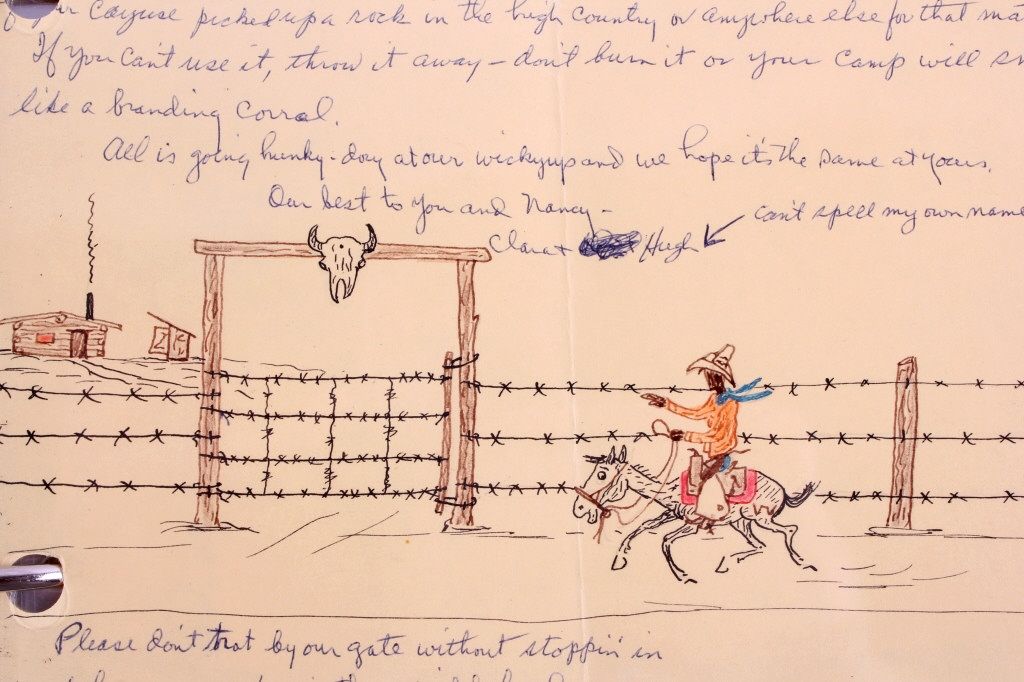 your Cayuse picked up a rock in the high country or anywhere else for that
If you can't use it, throw it away – don't burn it or your Camp will
like a branding Corral.
All is going hunky-dory at our wickyup and we hope it's the same at yours.
Our best to you and Nancy –
can't spell my own name
Clara + Hugh
Please don't trot by our gate without stoppin' in